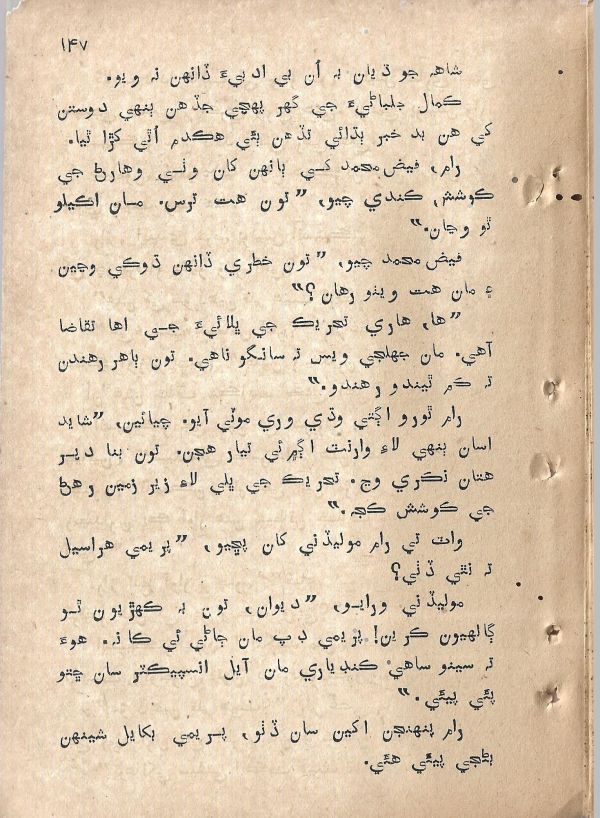 ۱۴۷
شاهہ جو ڌيان بہ اُن بي ادبيءَ ڏانهن نہ ويو.
ڪمال جلباڻيءَ جي گهر پهچي جڏهن ٻنهي دوستن
کي هن بد خبر ٻڌائي تڏهن ٻئي هڪدم اُٿي کڙا ٿيا.
رام، فيض محمد کي ٻانهن کان وٺي وهارڻ جي
ڪوشش ڪندي چيو، ”تون هت ترس. مان اڪيلو
ٿو وڃان.“
فيض محمد چيو، ”تون خطري ڏانهن ڌوڪي وڃين
۽ مان هت ويٺو رهان؟“
”ها، هاري تحريڪ جي ڀلائيءَ جي اها تقاضا
آهي. مان جهلجي ويس تہ سانگو ناهي. تون ٻاهر رهندين
تہ ڪم ٿيندو رهندو.“
رام ٿورو اڳتي وڌي وري موٽي آيو. چيائين، ”شايد
اسان ٻنهي لاءِ وارنٽ اڳم ئي تيار هجن. تون بنا دير
هتان نڪري وڃ. تحريڪ جي ڀلي لاءِ زير زمين رهڻ
جي ڪوشش ڪجہ.“
واٽ تي رام موليڏني کان پڇيو، ”پريمي هراسيل
تہ نٿي ڏٺي؟
موليڏني ورايو، ”ديوان، تون بہ ڪهڙيون ٿو
ڳالهيون ڪرين! پريمي ڊپ مان ڄاڻي ئي ڪا نہ. هوءَ
تہ سينو ساهي ڪنڊياري مان آيل انسپيڪٽر سان چٽو
پٽي پيئي.“
رام پنهنجن اکين سان ڏٺو، پريمي بکايل شينهن
بڻجي پيئي هئي.